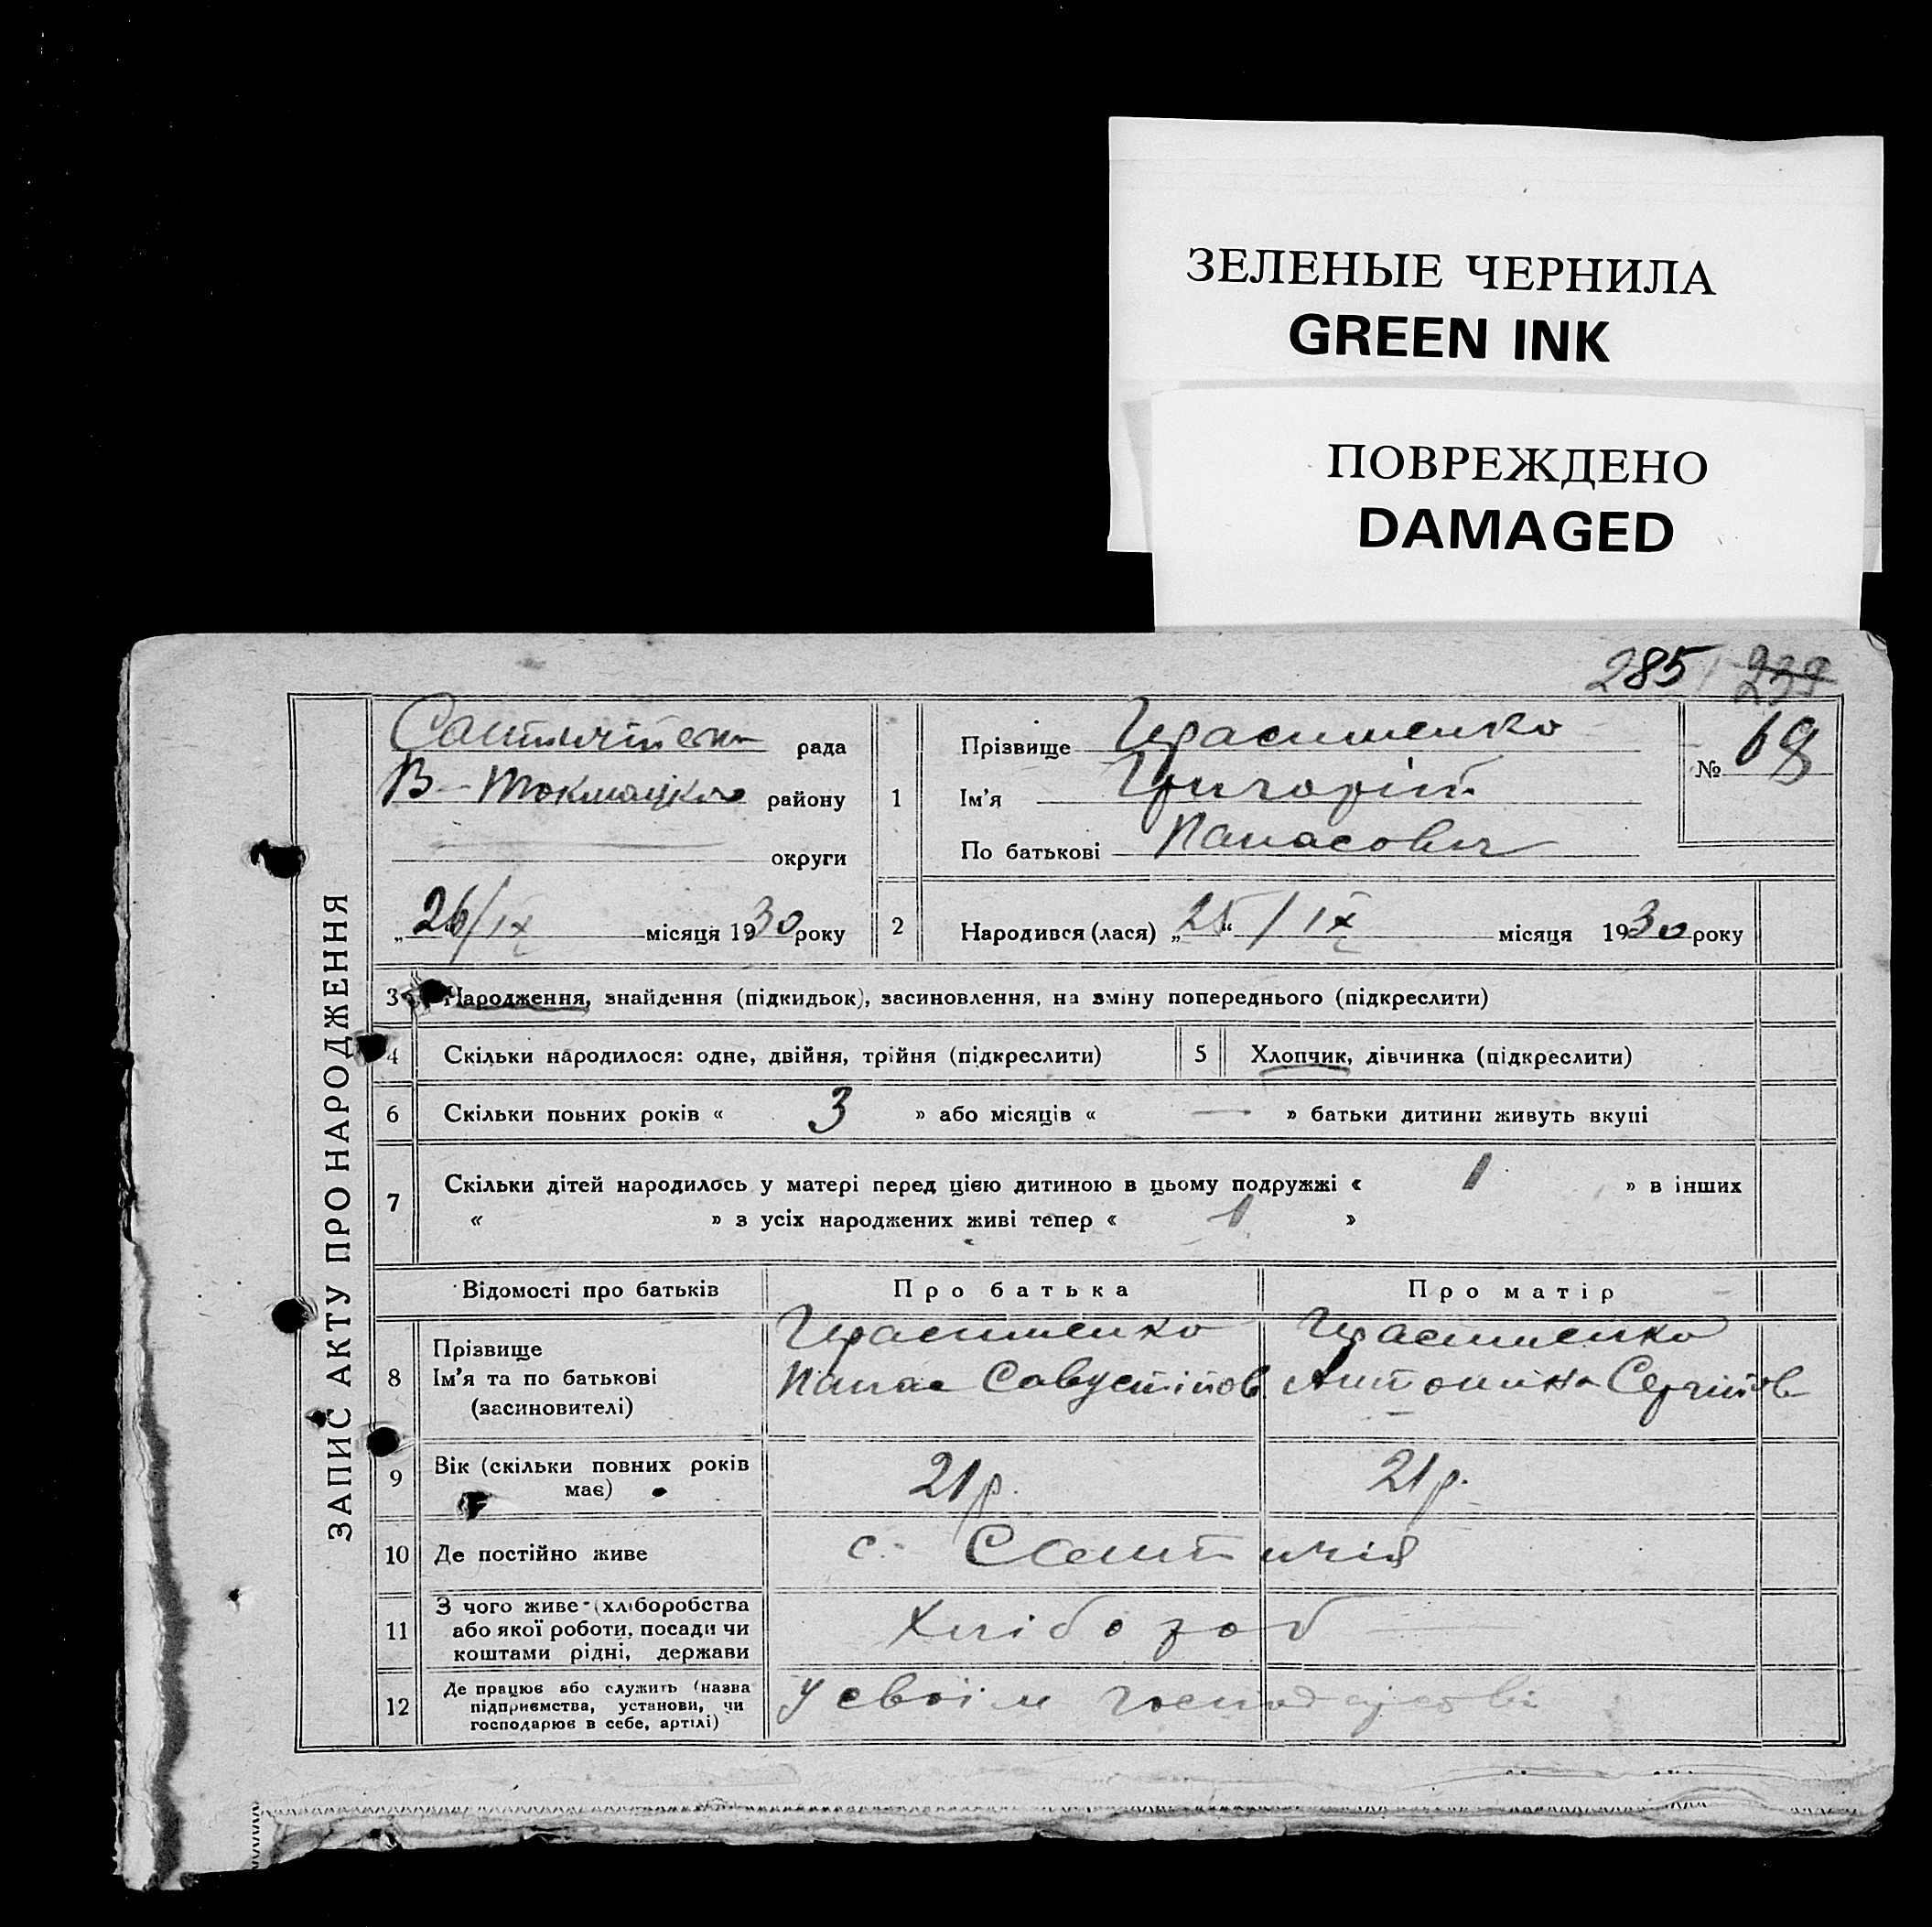 ЗЕЛЕНЫЕ ЧЕРНИЛА
GREEN INK
ПОВРЕЖДЕНО
DAMAGED
285 239
ЗАПИС АКТУ ПРО НАРОДЖЕННЯ
рада
В-Токмацького району
округи
„26/IX місяця 1930 року
1 Прізвище Герасименко
Ім'я Григорій
По батькові Панасович
№ 68
2 Народився (лася) „25“ / IX місяця 1930 року
3 Народження, знайдення (підкидьок), засиновлення, на зміну попереднього (підкреслити)
4 Скільки народилося: одне, двійня, трійня (підкреслити) 5 Хлопчик, дівчинка (підкреслити)
6 Скільки повних років « 3 » або місяців « — » батьки дитини живуть вкупі
7 Скільки дітей народилось у матері перед цією дитиною в цьому подружжі « 1 » в інших
« » з усіх народжених живі тепер « 1 »
Відомості про батьків Про батька Про матір
8 Прізвище Герасименко Герасименко
Ім'я та по батькові Панас Савустіпов Антонина Сергіїов
(засиновителі)
9 Вік (скільки повних років має) 21 р. 21 р.
10 Де постійно живе с.
11 З чого живе (хліборобства або якої роботи, посади чи коштами рідні, держави Хлібороб
12 Де працює або служить (назва підприємства, установи, чи господарює в себе, артілі) У своїм господарстві